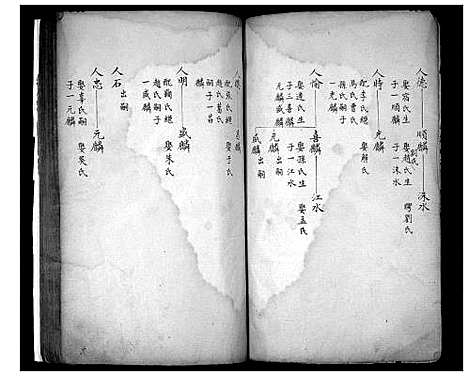 人德 順麟 洙水
娶宿氏生 娶趙氏生 劉氏 娶劉氏
子一順麟 子一洙水
人時 元麟
配李氏繼 娶解氏
馬氏曹氏
孫氏嗣子
一元麟
人愉 喜麟 江水
娶連氏生 娶孫氏生 娶孟氏
子三喜麟 子一江水
元麟 元麟出嗣
咸麟 咸麟出嗣
配張氏繼 娶于氏
趙氏葛氏
嗣子一昌
麟
人明 咸麟
配鞠氏繼 娶朱氏
趙氏嗣子
一咸麟
人石
出嗣
人忠 元麟
娶辛氏嗣 娶吳氏
子一元麟